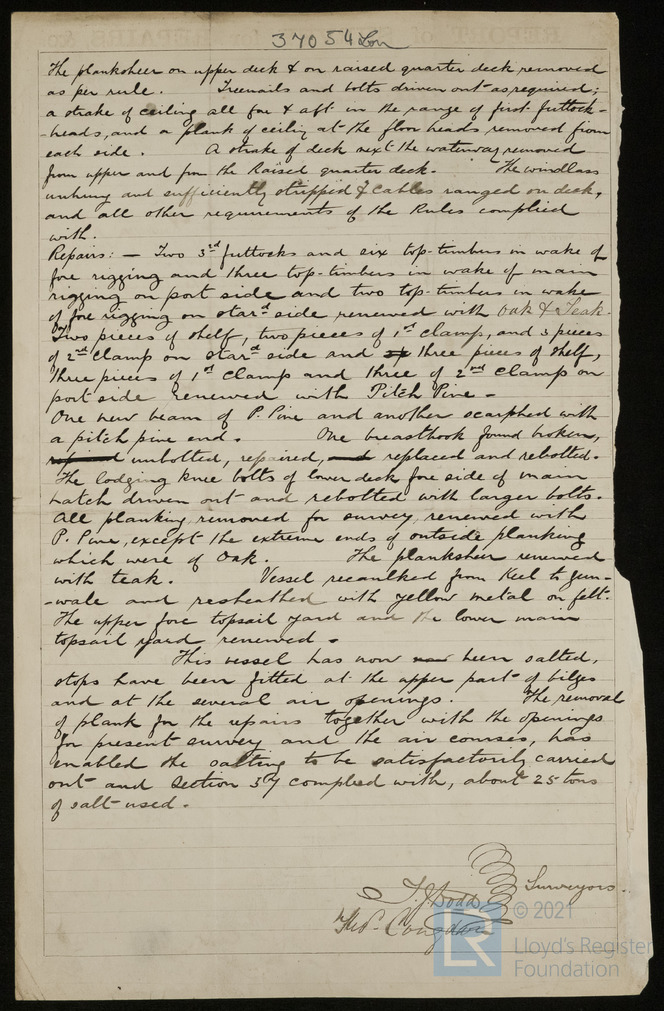 37054 Lon
The planksheer on upper deck & on raised quarter deck removed
as per rule. Treenails and bolts driven out as required;
a strake of ceiling all fore & aft in the range of first futtock-
heads, and a plank of ceiling at the floor heads removed from
each side. A strake of deck next the waterway removed
from upper and from the Raised quarter deck. The windlass
unhung and sufficiently stripped & Cables ranged on deck,
and all other requirements of the Rules complied
with.
Repairs: — Two 3rd futtocks and six top-timbers in wake of
fore rigging and three top-timbers in wake of main
rigging on port side and two top-timbers in wake
of fore rigging on stard side renewed with Oak & Teak.
Two pieces of shelf, two pieces of 1st clamp, and 3 pieces
of 2nd Clamp on stard side and three pieces of shelf,
three pieces of 1st Clamp and three of 2nd Clamp on
port side renewed with Pitch Pine –
One new beam of P. Pine and another scarphed with
a pitch pine end. One breasthook found broken,
unbolted, repaired, replaced and rebolted.
The lodging knee bolts of lower deck fore side of main
hatch driven out and rebolted with larger bolts.
All planking removed for survey, renewed with
P. Pine, except the extreme ends of outside planking
which were of Oak. The planksheer renewed
with teak. Vessel recaulked from Keel to gun-
-wale and resheathed with yellow metal on felt.
The upper fore topsail yard and the lower main
topsail yard renewed –
This vessel has now been salted,
stops have been fitted at the upper part of bilges
and at the several air openings. The removal
of plank for the repairs together with the openings
for present survey and the air courses, has
enabled the salting to be satisfactorily carried
out and Section 57 complied with, about 25 tons
of salt used.
Surveyors.
T. J. Dodd
Thos. Congdon
© 2021
LR
Lloyd's Register
Foundation